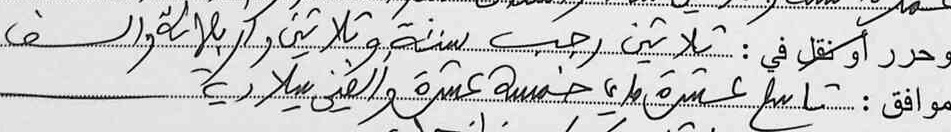 وحرر أو نقل في : ثلاثين رجب سنة وثلاثين وأربعمائة وألف
موافق : تاسع عشرة ماي خمسة عشرة والفين ميلادية